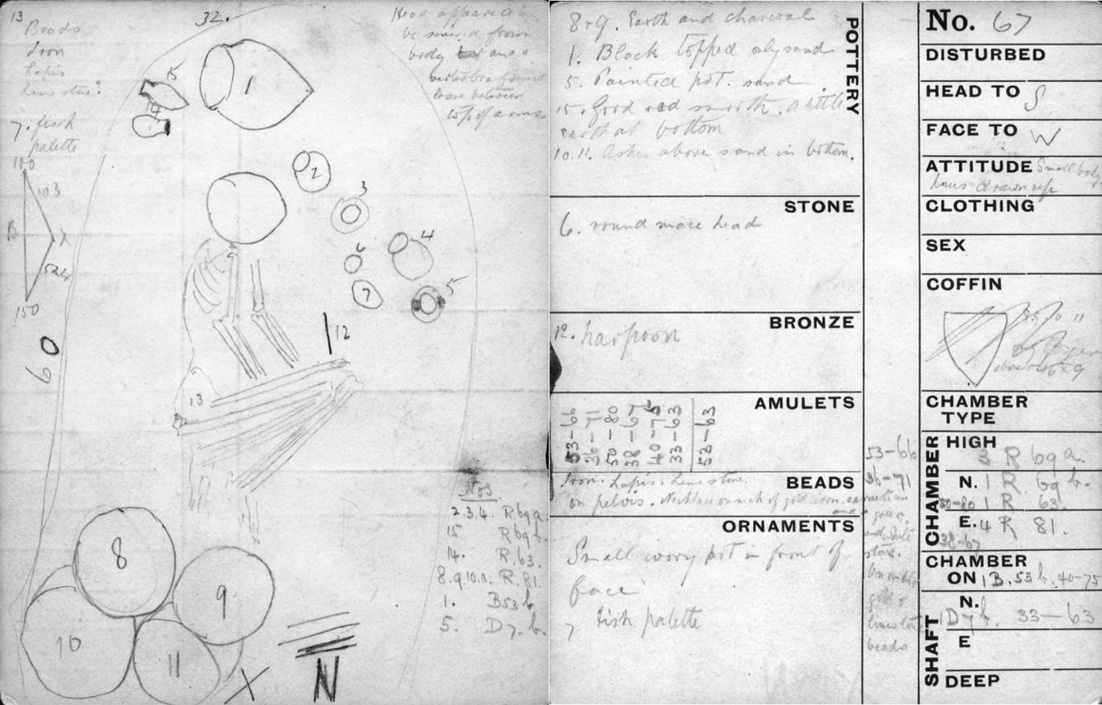 13
Beads
Iron
Lapis
Lime stone?
7. fish
palette
100
103
B
524
150
60
32.
Head appeared to
be severed from
body and a
vertebra found
loose between
top of arms
15
14
1
2
3
4
6
7
5
12
13
8
9
10
11
X
N
Nos
2.3.4. R 69 a
15 R 69 b
14. R. 63.
8.9.10.11. R. 81.
1. B 53 b.
5. D 7. b.
POTTERY
8 & 9. Earth and charcoal
1. Black topped only sand
5. Painted pot. sand
15. Good red smooth. a little
earth at bottom
10.11. Ashes above sand in bottom.
STONE
6. round mace head
BRONZE
12. harpoon
AMULETS
53-66
36-71
50-80
38-67
40-75
33-63
53-63
BEADS
Iron. Lapis. Limestone.
on pelvis. Necklace on neck of gold iron, carnelian
ORNAMENTS
Small ivory pot in front of
face
7 Fish palette
53-66
36-71
and
stone.
On
gold &
limestone
beads
No. 67
DISTURBED
HEAD TO S
FACE TO W
ATTITUDE Small body
knees drawn up
CLOTHING
SEX
COFFIN
CHAMBER
TYPE
CHAMBER
HIGH 3 R 69 a.
N. 1 R 69 b.
50-80 1 R 63.
E. 4 R 81.
38-67
CHAMBER
ON 1 B. 53 b. 40-75
SHAFT
N. 1 D 7 b. 33-63
E
DEEP